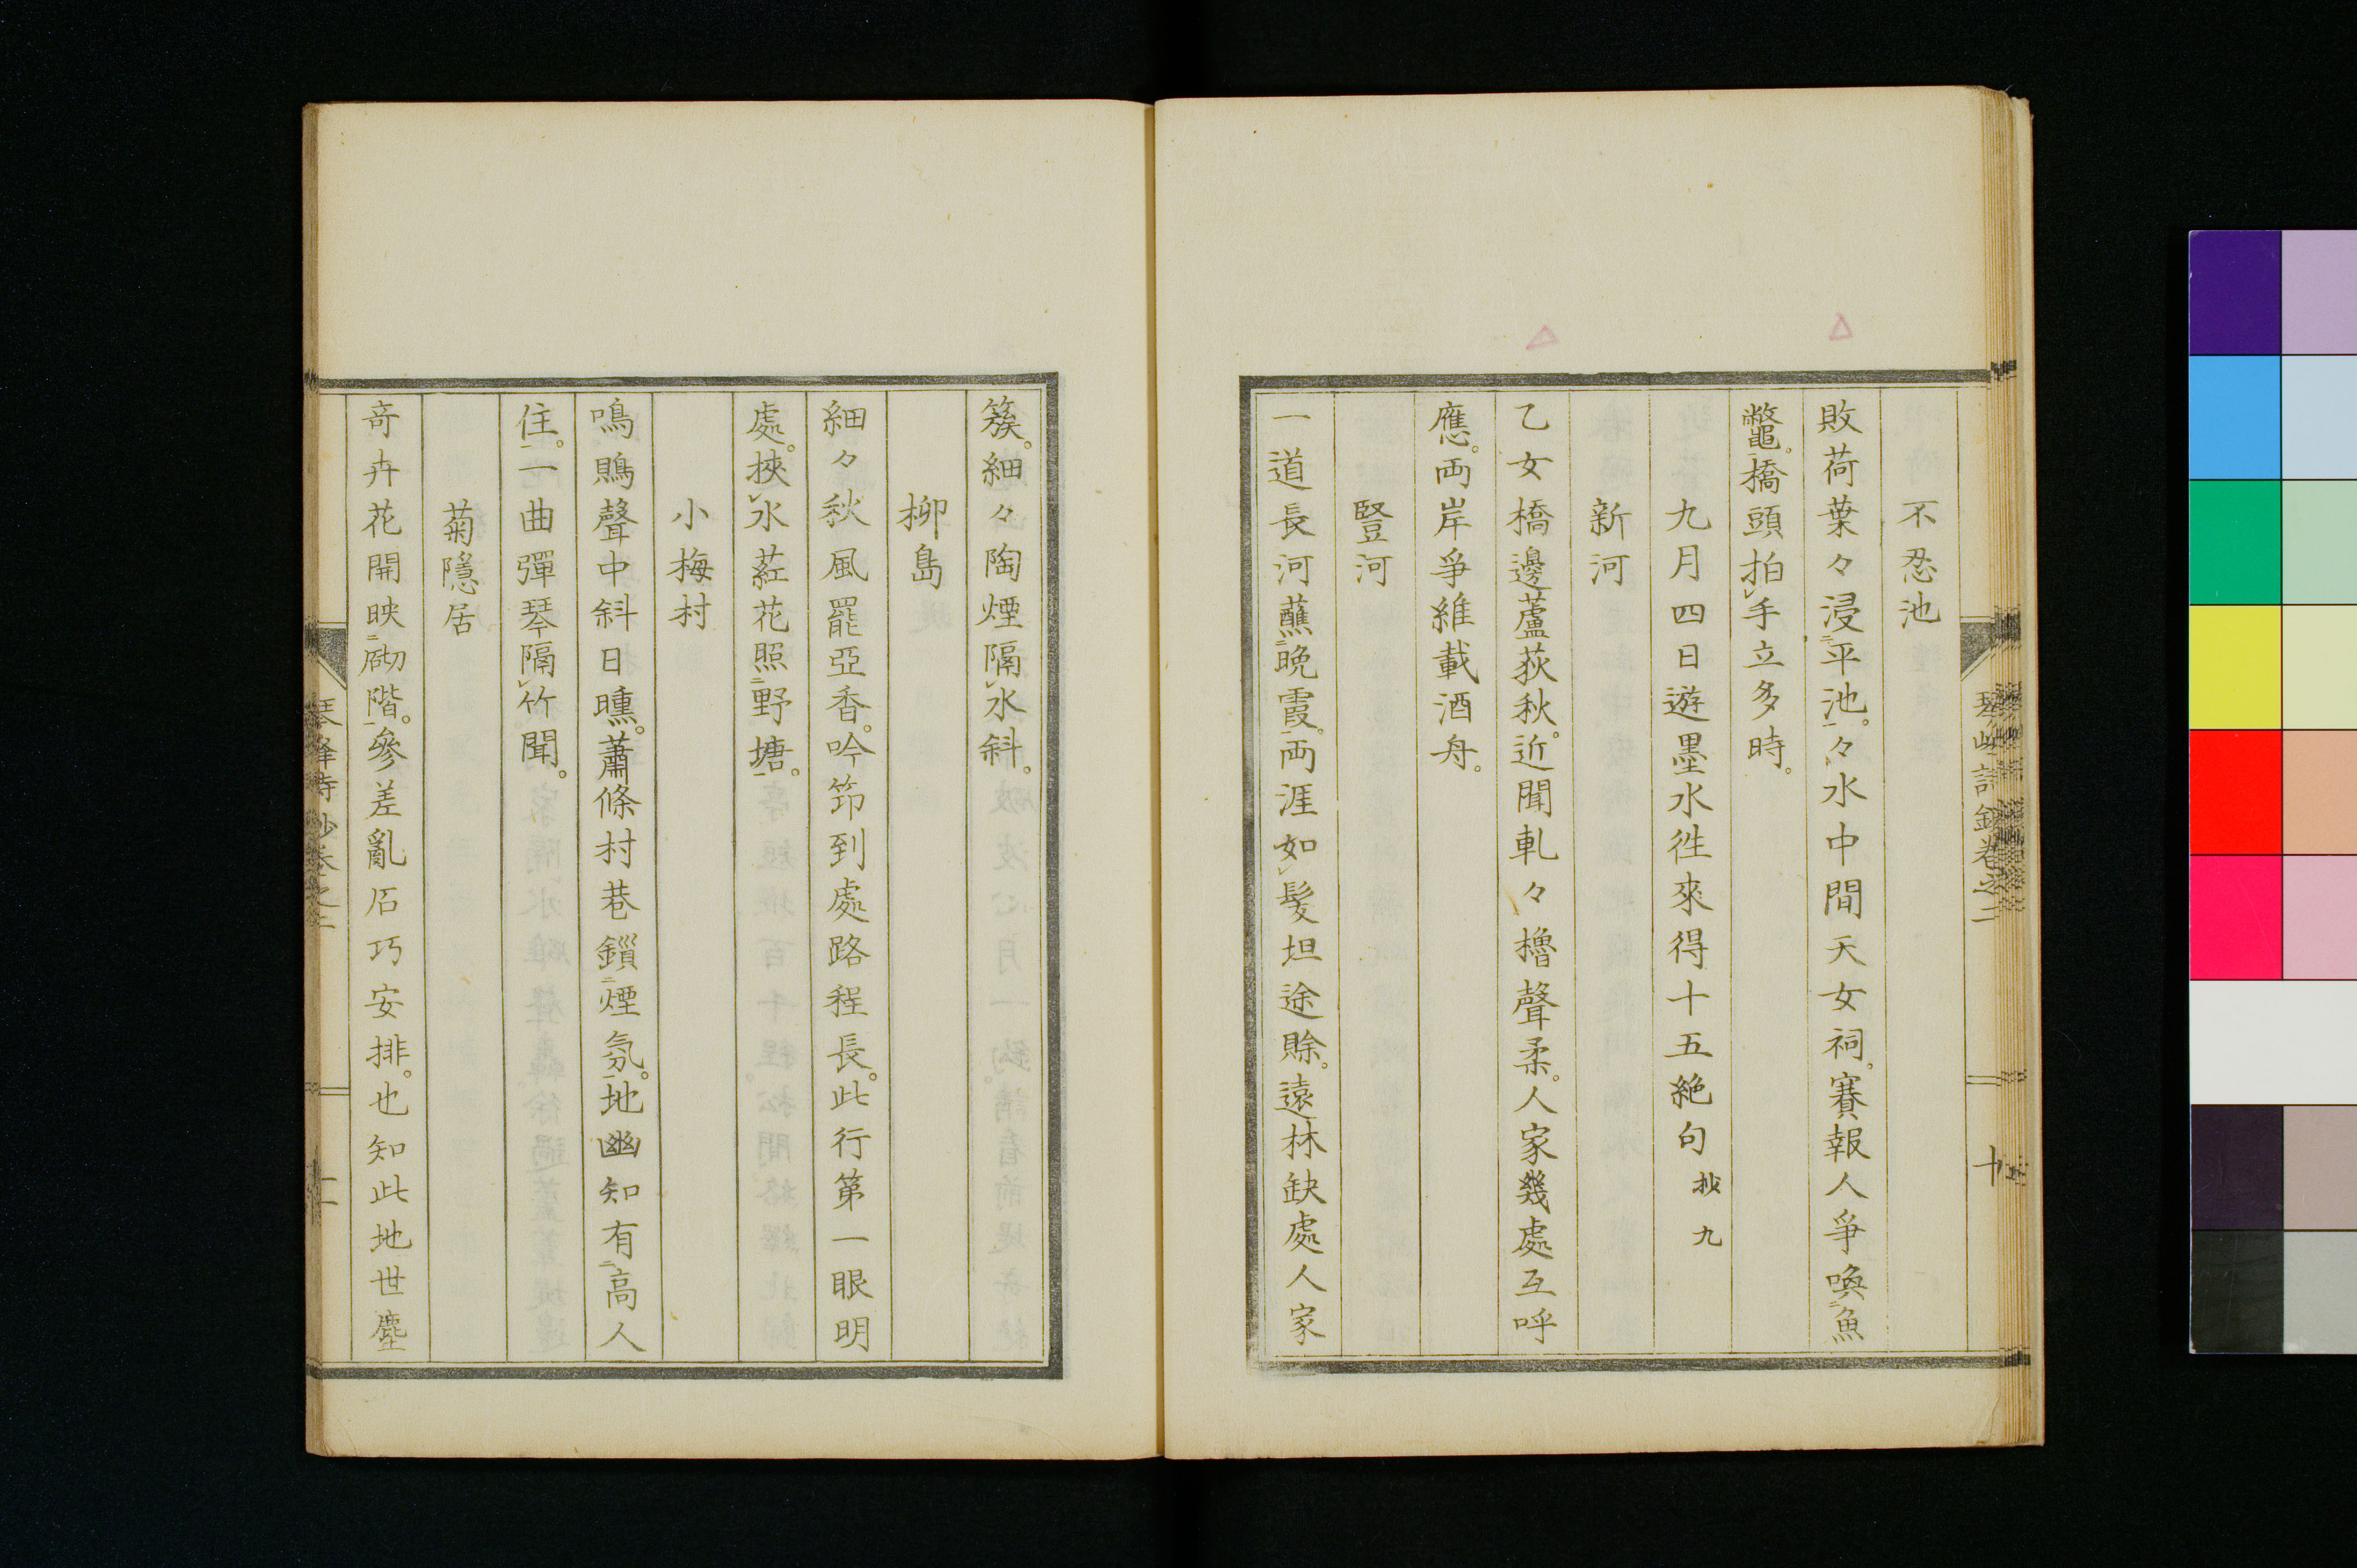 不忍池
敗荷葉々浸平池。々水中間天女祠。賽報人爭喚魚
鼈。橋頭拍手立多時。
九月四日遊墨水徃來得十五絶句抄九
新河
乙女橋邊蘆荻秋。近聞軋々櫓聲柔。人家幾處互呼
應。両岸爭維載酒舟。
豎河
一道長河蘸晩霞。両涯如髮坦途賖。遠林缺處人家
簇。細々陶煙隔水斜。
柳島
細々秋風罷亞香。吟筇到處路程長。此行第一眼明
處。挾水葒花照野塘。
小梅村
鳴鵙聲中斜日曛。蕭條村巷鎻煙氛。地幽知有高人
住。一曲彈琴隔竹聞。
菊隱居
奇卉花開映砌階。參差亂石巧安排。也知此地世塵